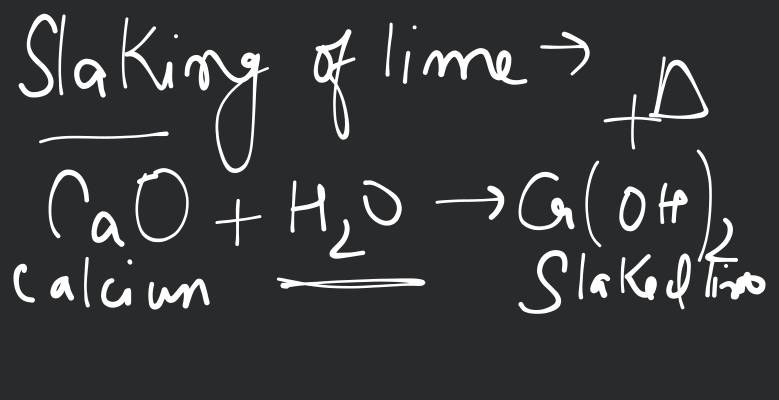 Slaking of lime →
+ Δ
CaO + H₂O → Ca(OH)₂
Calcium Slaked lime